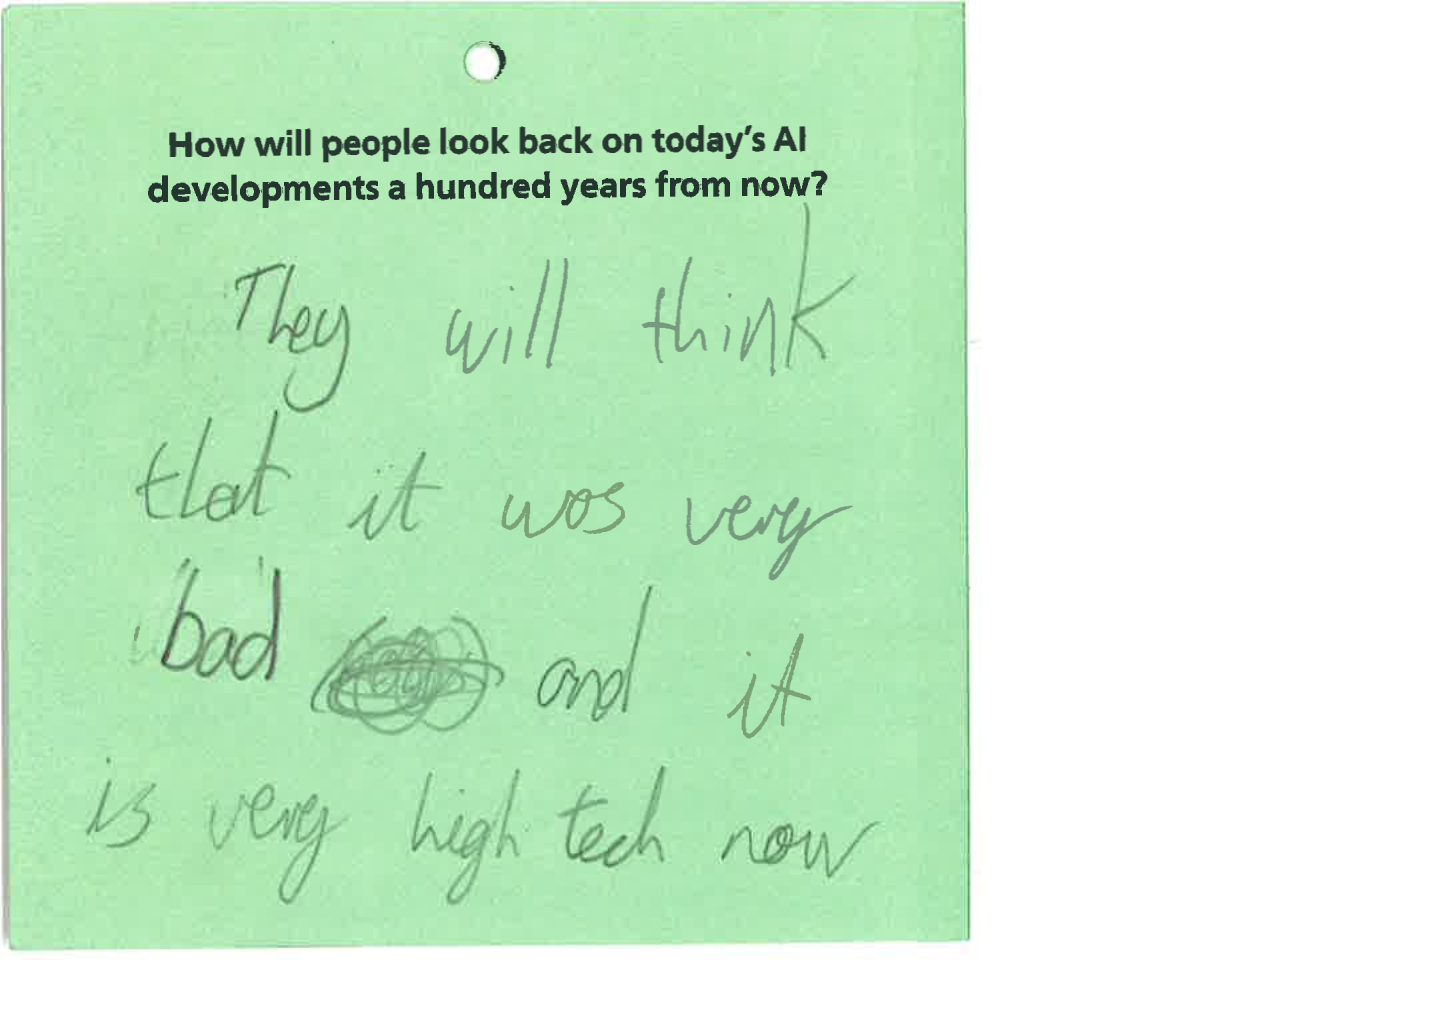 How will people look back on today's AI
developments a hundred years from now?
They will think
that it was very
bad and it
is very high tech now